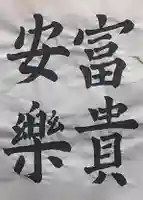 富貴
安樂